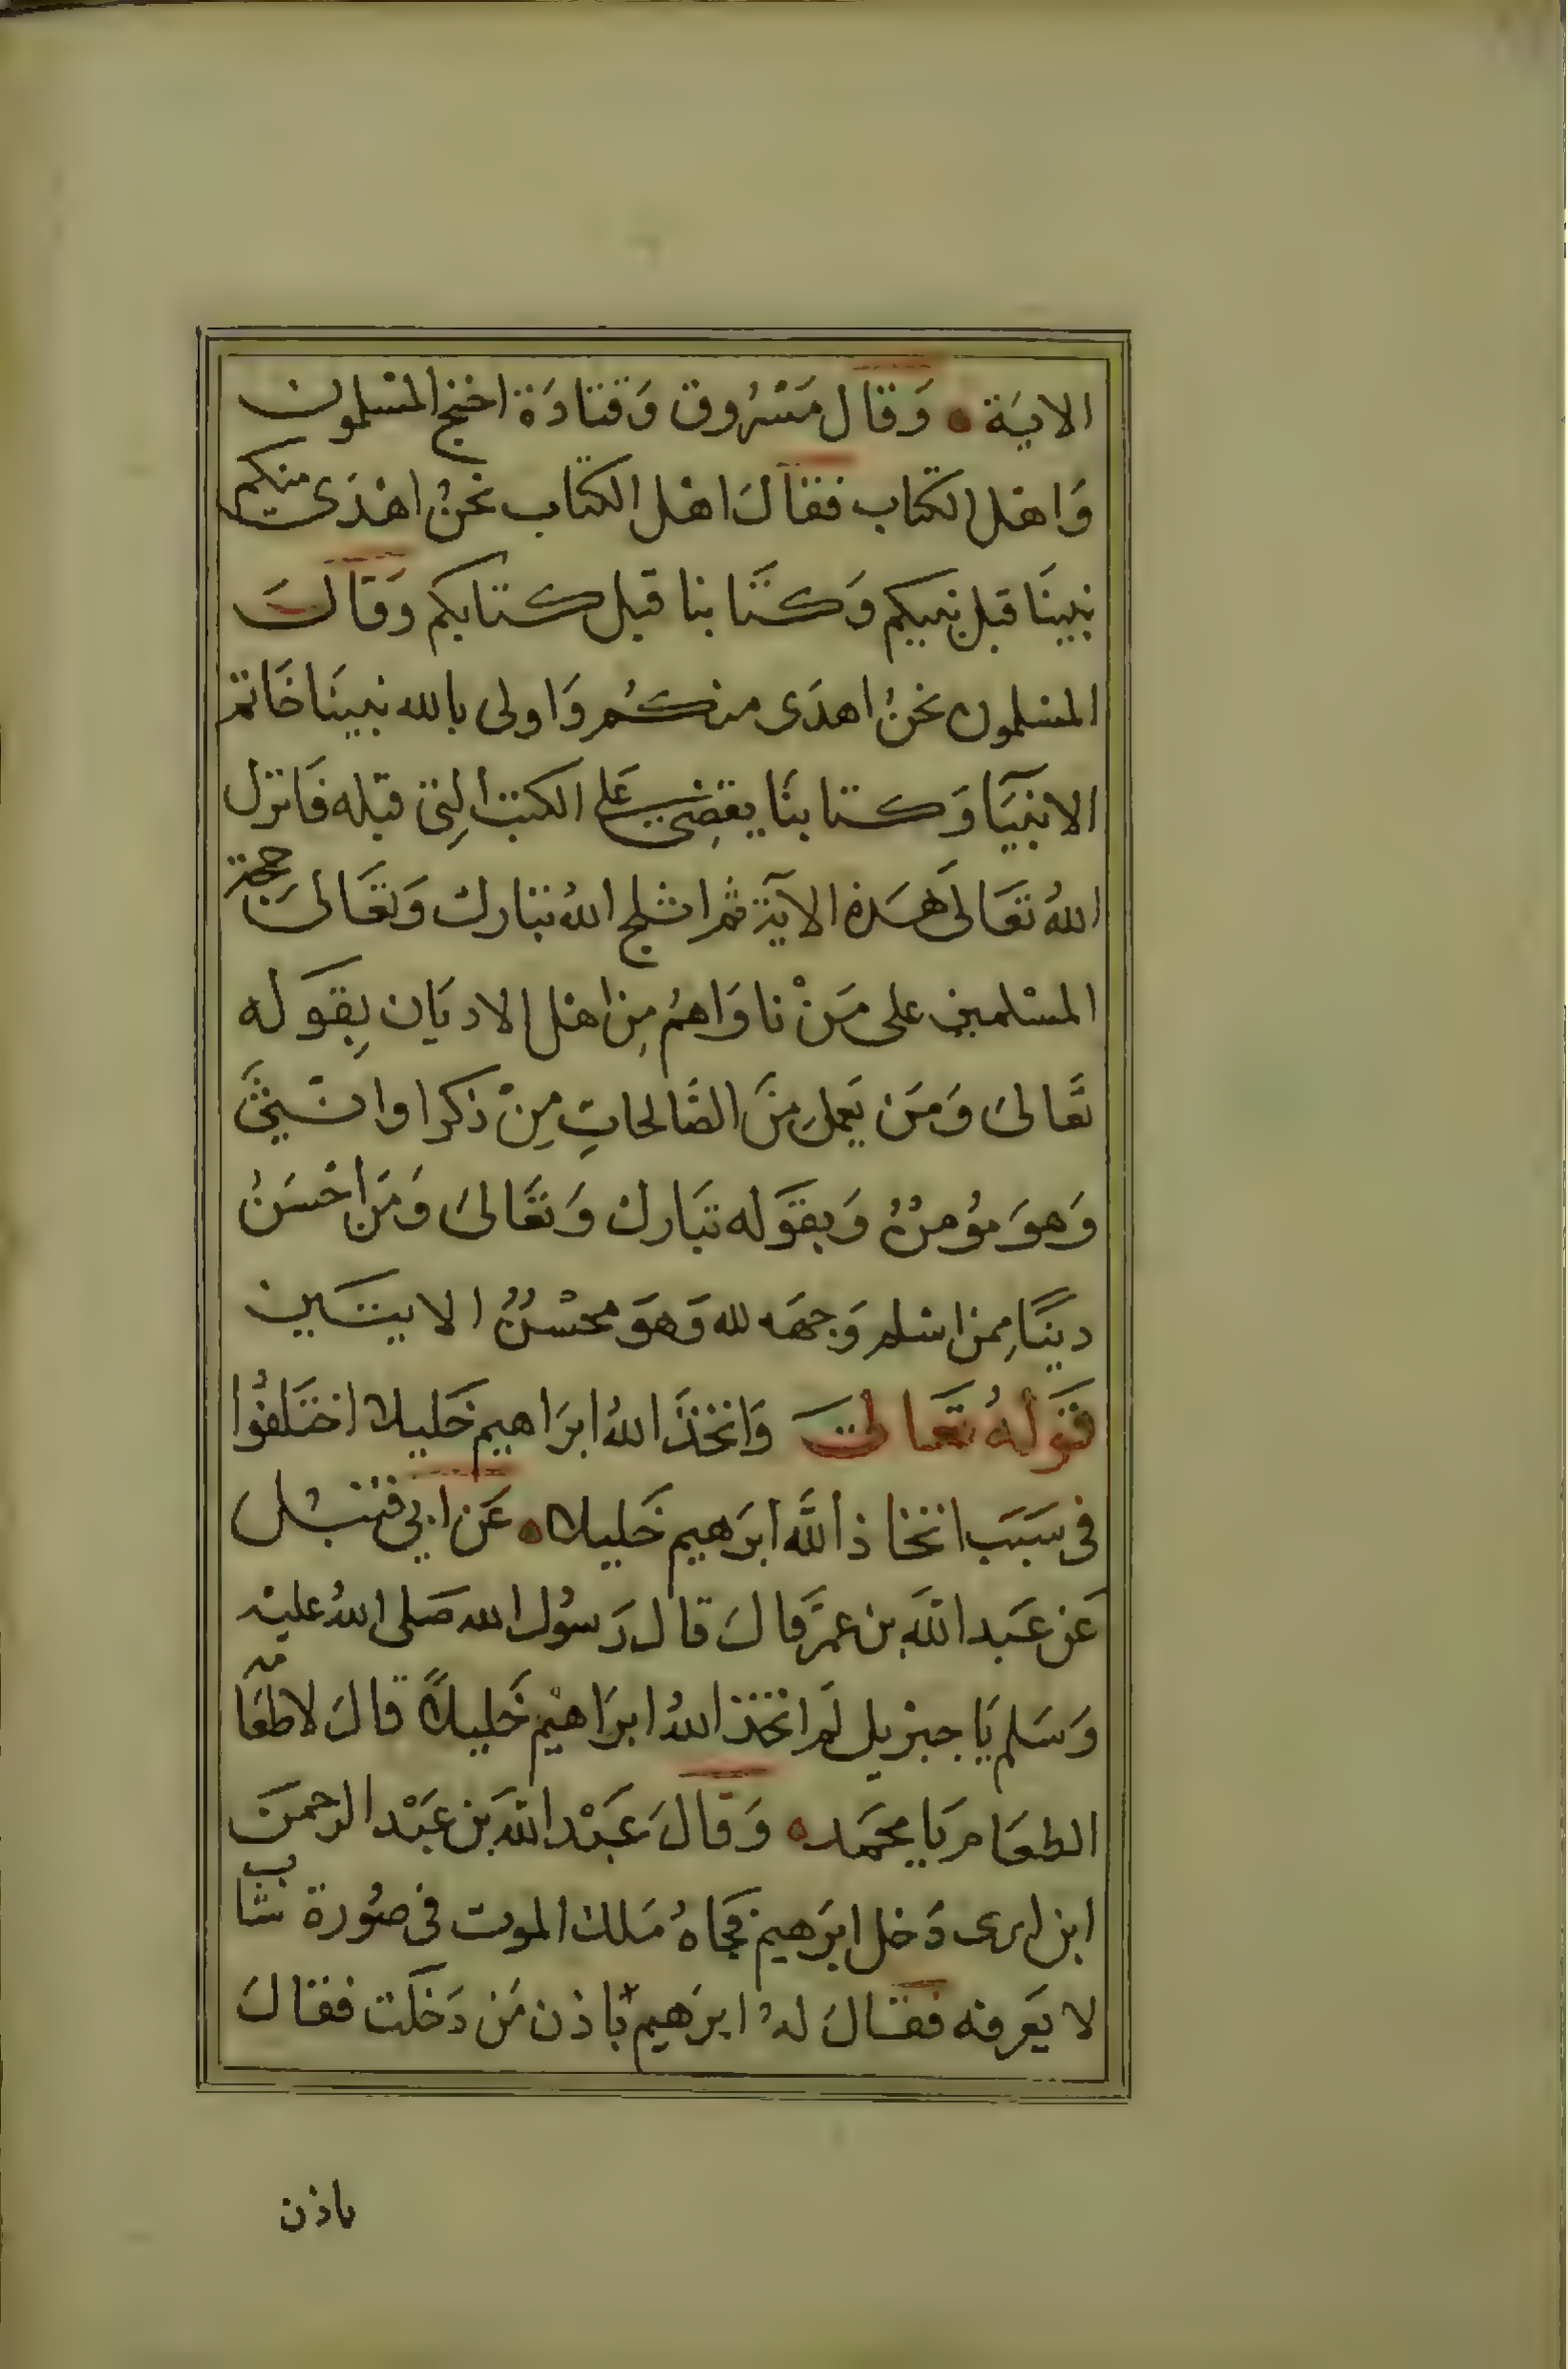 الاية ه وَقال مَسْرُوق وَقتادَة احتج المسْلمون
وَاهْل الكتاب فقالَ اهْل الكتاب نحنُ اهْدَى منكم
نبينَا قبل نبيكم وَكتَابنا قبل كتابكم وَقالَ
المسْلمون نحنُ اهدَى منكُم وَاولى بالله نبينَا خَاتم
الانبيَآ وَكتابنَا يقضِي عَلى الكتب التِي قبله فَانزل
اللهُ تعَالَى هَذه الآية ثم افلج اللهُ تبارك وَتعَالىَ حجة
المسْلمين على مَنْ ناوَاهمُ مِن اهْل الاديَان بِقوَله
تعَالىَ وَمَن يَعمل منَ الصَّالحاتِ مِنْ ذكر او انثى
وَهوَ مؤُمنٌ وَبقوَله تبَارك وَتعَالىَ وَمَن احْسَنُ
دينًا مِمن اسْلم وَجهَه لله وَهوَ محسْنٌ الايتَين
قَوْلهُ تَعَالىَ وَاتخذَ اللهُ ابرَاهيم خَليلا اختَلفُوا
فى سَبَب اتخاذ اللَّه ابرَهيم خَليلا ه عَن ابي قنبْل
عَن عَبد اللَّهِ بن عمَر قالَ قال رَسُول الله صَلى اللهُ عليْه
وَسَلم يَا جبريل لمَ اتخذ اللهُ ابرَاهيْم خَليلاً قالَ لاطعَامه
الطعَام يَا محمَد ه وَقالَ عَبْد اللَّه بَن عَبْد الرحمَن
ابن ابرى دَخل ابرَهيم فجَاهُ مَلك الموت فى صُورة شَاب
لا يَعرفه فقالَ لهُ ابرَهيم بٌاذن مَن دَخَلت فقالَ
باذن